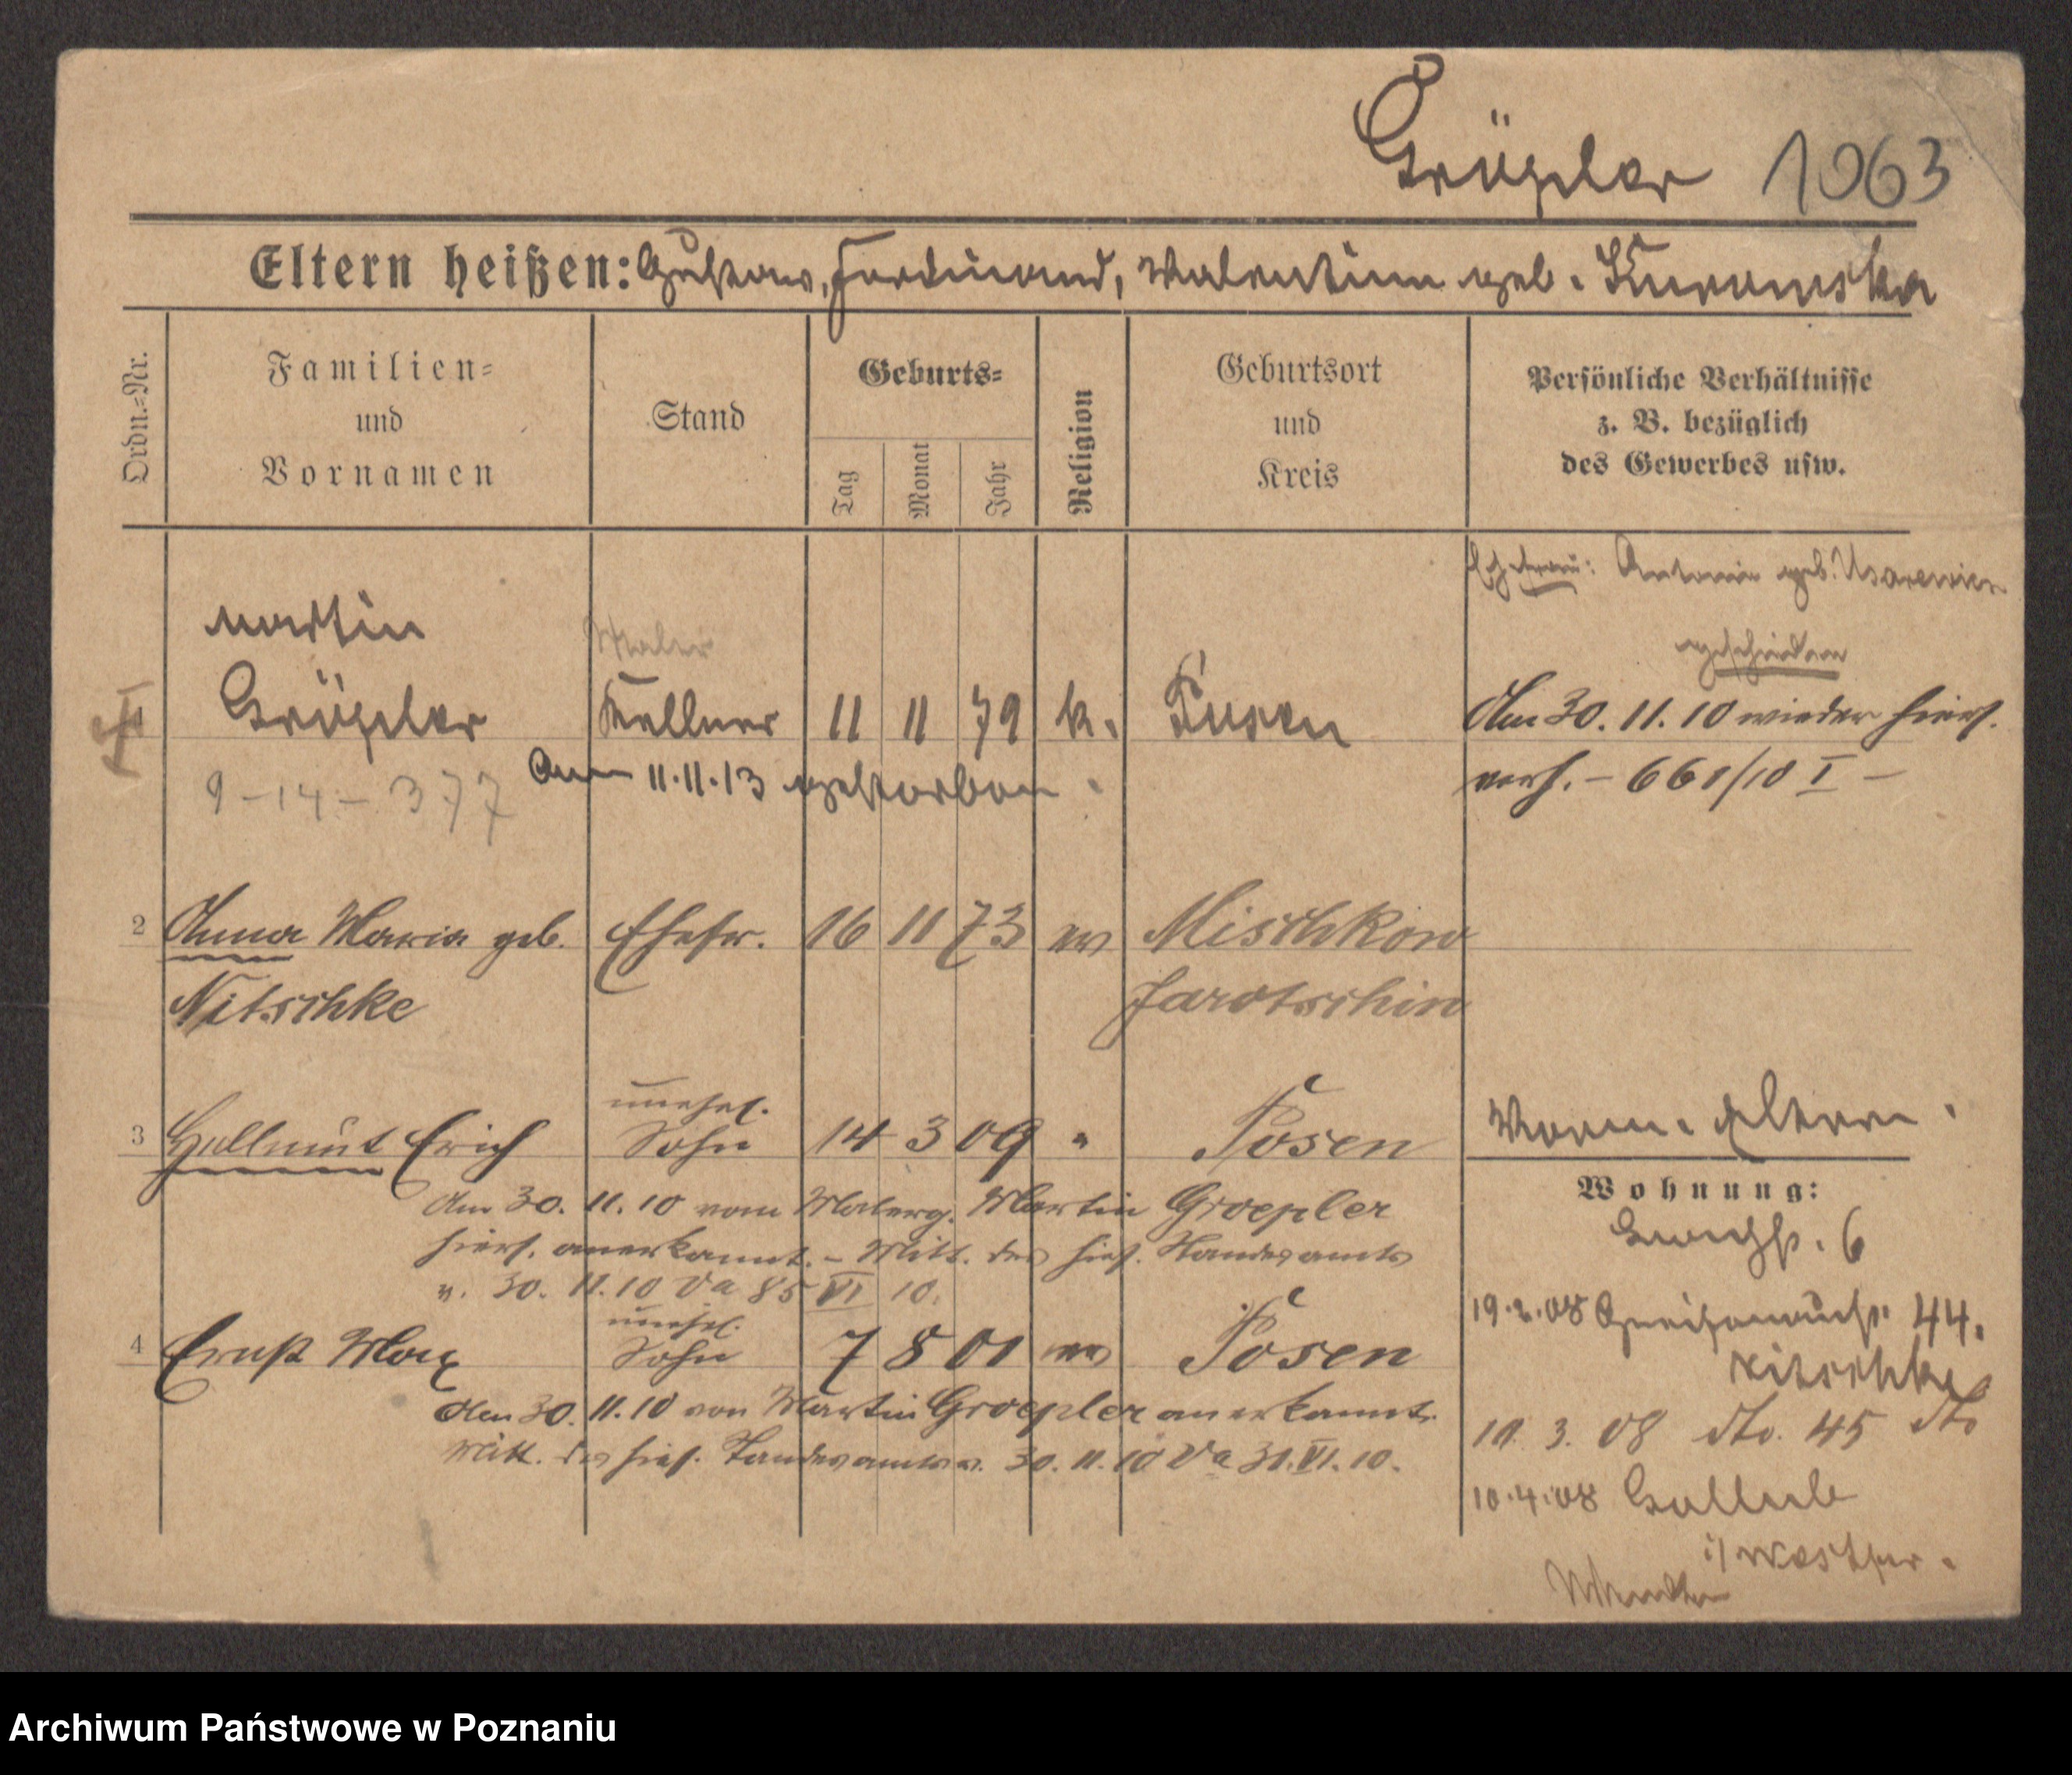 Gröpler 1063
Eltern heißen: Gustav, Ferdinand, Valentine geb.
Ordn.=Nr.
Familien=
und
Vornamen
Stand
Geburts=
Tag
Monat
Jahr
Religion
Geburtsort
und
Kreis
Persönliche Verhältnisse
z. B. bezüglich
des Gewerbes usw.
Ehefrau: Antonie geb.
geschieden
Martin
Maler
1 Gröpler Kellner 11 11 79 k. Posen Am 30. 11. 10 wieder hiers.
9 - 14 - 377 Am 11.11.13 gestorben.
verh. - 661/10 I -
2 Anna Maria geb. Ehefr. 16 11 73 ev Mischkow
Nitschke Jarotschin
unehel.
3 Hellmut Erich Sohn 14 3 09 " Posen Eltern.
Wohnung:
Am 30. 11. 10 vom Malerg. Martin Groepler
hiers. anerkannt. - Mitt. des hies. Standesamts
v. 30. 11. 10 Va 85 VI 10.
6
unehel.
4 Ernst Max Sohn 7 8 01 ev Posen
19.2.08 Gneisenaustr. 44.
Nitschke
Am 30. 11. 10 von Martin Groepler anerkannt.
Mitt. des hies. Standesamts v. 30. 11. 10 Va 31. VI. 10.
11. 3. 08 dto. 45 dto
10.4.08 Gollub
i/ Westpr.
Archiwum Państwowe w Poznaniu